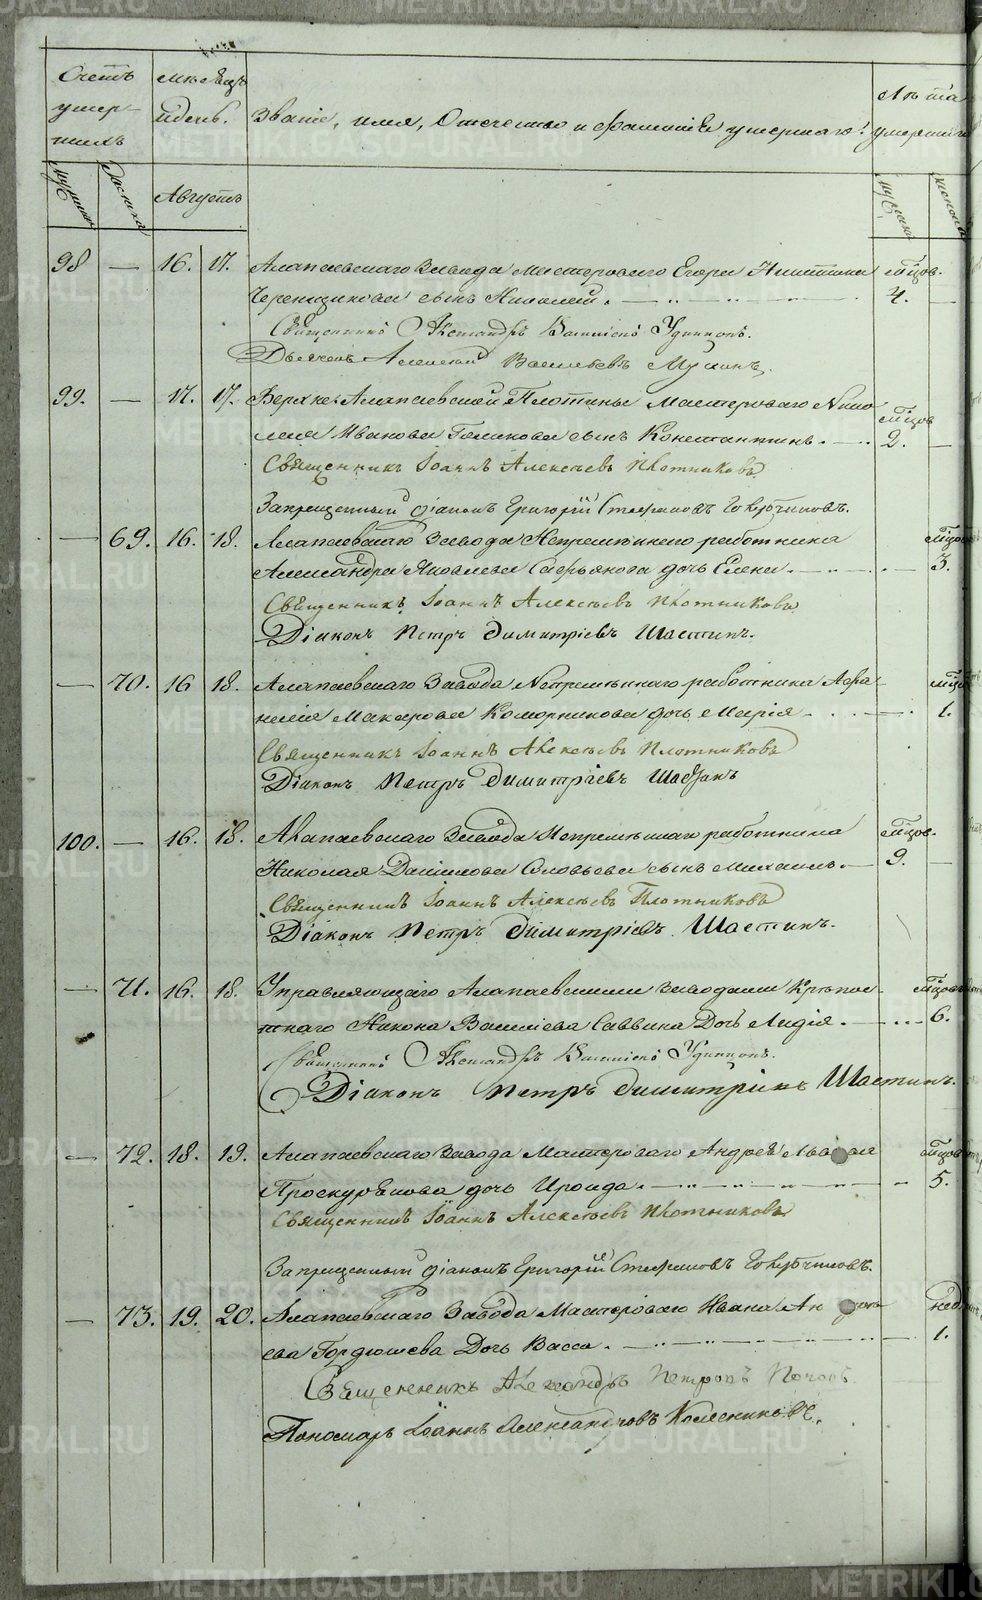 Счетъ умершихъ
Мѣсяцъ и день.
Званіе, имя, Отечество и фамилія умершаго.
Лѣта умершаго
мужеска
женска
Августъ
мужеска
женска
98 — 16. 17. Алапаевскаго Завода Мастероваго Егора Никитина мѣсяцов.
Черепицкова сынъ Николай. 4.
Священникъ Александръ Удинцовъ.
Алексѣй Васильевъ Мухинъ.
99. — 17. 17. Верхне-Алапаевской Плотины Мастероваго Нико- мѣсяцов
лая Иванова Голикова сынъ Константинъ. 2.
Священникъ Іоаннъ Алексѣевъ Плотниковъ
Запрещенный діаконъ Григорій Стефановъ
— 69. 16. 18. Алапаевскаго Завода Непремѣннаго работника
Александра Яковлева дочь Елена. 3.
Священникъ Іоаннъ Алексѣевъ Плотниковъ
Діаконъ Петръ Димитріевъ Шастинъ.
— 70. 16 18. Алапаевскаго Завода Непремѣннаго работника Афа-
насія Макарова Коморникова дочь Марія. 1.
Священникъ Іоаннъ Алексѣевъ Плотниковъ
Діаконъ Петръ Димитріевъ Шастинъ
100. — 16. 18. Алапаевскаго Завода Непремѣннаго работника мѣсяцов.
Николая Данилова Соловьева сынъ Михаилъ. 9.
Священникъ Іоаннъ Алексѣевъ Плотниковъ
Діаконъ Петръ Димитріевъ Шастинъ.
— 71. 16. 18. Управляющаго Алапаевскими Заводами Крѣпос-
тнаго Никона Василіева Саввина Дочь Лидія. 6.
Священникъ Александръ Удинцовъ.
Діаконъ Петръ Димитріевъ Шастинъ.
— 72. 18. 19. Алапаевскаго Завода Мастероваго Андрея
Проскурякова дочь Ироида. 5.
Священникъ Іоаннъ Алексѣевъ Плотниковъ
Запрещенный діаконъ Григорій Стефановъ
— 73. 19. 20. Алапаевскаго Завода Мастероваго Ивана Ан
ева Гордюшева Дочь Васса. 1.
Священникъ Александръ Петровъ Поповъ
Пономарь Іоаннъ Александровъ Колесниковъ.
METRIKI.GASO-URAL.RU